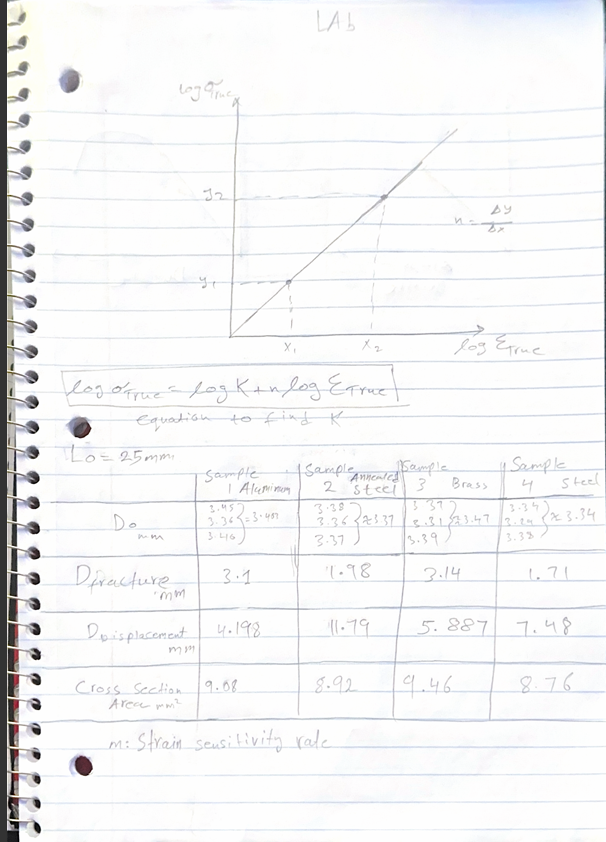 LAb
log σTrue
y2
n = Δy/Δx
y1
x1 x2
log ƐTrue
log σTrue = log K + n log ƐTrue
equation to find K
Lo = 25mm
Sample 1 Aluminum Sample 2 Annealed Steel Sample 3 Brass Sample 4 Steel
Do mm 3.36 3.38 3.36 3.37 } ≈ 3.37 3.37 3.31 3.39 } ≈ 3.47 3.34 3.38 } ≈ 3.34
Dfracture mm 3.1 1.98 3.14 1.71
Displacement mm 4.198 11.79 5.887 7.48
Cross Section Area mm² 9.08 8.92 9.46 8.76
m: Strain sensitivity rate